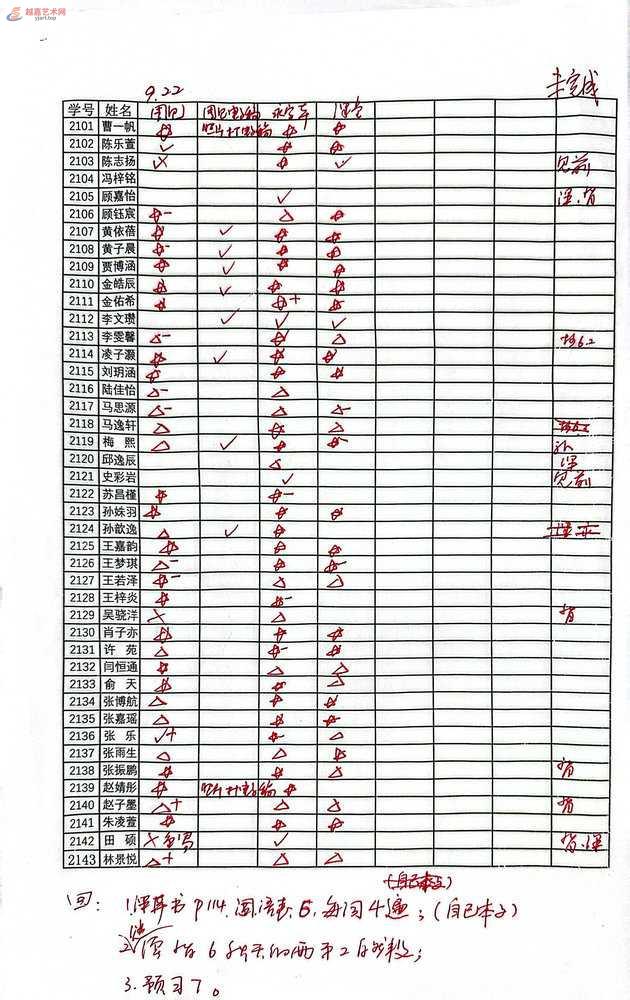 越嘉艺术网
yjart.top
9.22
未完成
学号 姓名 周记 周记电子稿
2101 曹一帆 ☆ 照片 电子稿 ☆ ☆
2102 陈乐萱 ✓ ☆ ☆
2103 陈志扬 ✗ ☆ ✓ 见前
2104 冯梓铭
2105 顾嘉怡 ✓
2106 顾钰宸 ☆- △ ☆
2107 黄依蓓 ☆ ✓ ☆ ☆
2108 黄子晨 ☆ ✓ ☆ ☆
2109 贾博涵 ☆ ✓ ☆ ☆
2110 金皓辰 ☆ ✓ ☆ ☆
2111 金佑希 ☆ ☆+ ☆
2112 李文瓒 ✓ ✓ ✓
2113 李雯馨 △- ☆ △ 6.2
2114 凌子灏 ☆ ✓ ☆ ☆
2115 刘玥涵 ☆ ☆ ☆
2116 陆佳怡 △- △
2117 马思源 △- △ △-
2118 马逸轩 △ ☆ △
2119 梅熙 △ ✓ ☆ ☆- 补
2120 邱逸辰 △
2121 史彩岩 ✓ 见前
2122 苏昌槿 ☆ ☆-
2123 孙姝羽 ☆ ☆ ☆
2124 孙歆逸 △ ✓ ☆
2125 王嘉韵 ☆ ☆ ☆
2126 王梦琪 △- ☆ ☆-
2127 王若泽 ☆- △ △
2128 王梓炎 ☆ ☆-
2129 吴骁洋 ✗ △ 背
2130 肖子亦 ☆ ☆ ☆
2131 许苑 △ ☆- ☆
2132 闫恒通 ☆ △ △
2133 俞天 ☆ ☆ △
2134 张博航 △ ☆ ☆
2135 张嘉瑶 △ ☆ ☆-
2136 张乐 ✓+ ☆- △
2137 张雨生 △ △ ☆
2138 张振鹏 ☆ ☆ △ 背
2139 赵婧彤 ☆ 照片 电子稿 ☆
2140 赵子墨 △+ △ △ 背
2141 朱凌萱 ☆ ☆ ☆
2142 田硕 ✗ ✓ 背、课
2143 林景悦 △+ △ △
(自己本子)
回：1. 书P114. 词语表.5. 每词4遍；(自己本子)
2. 背6 2自然段；
3. 预习7。